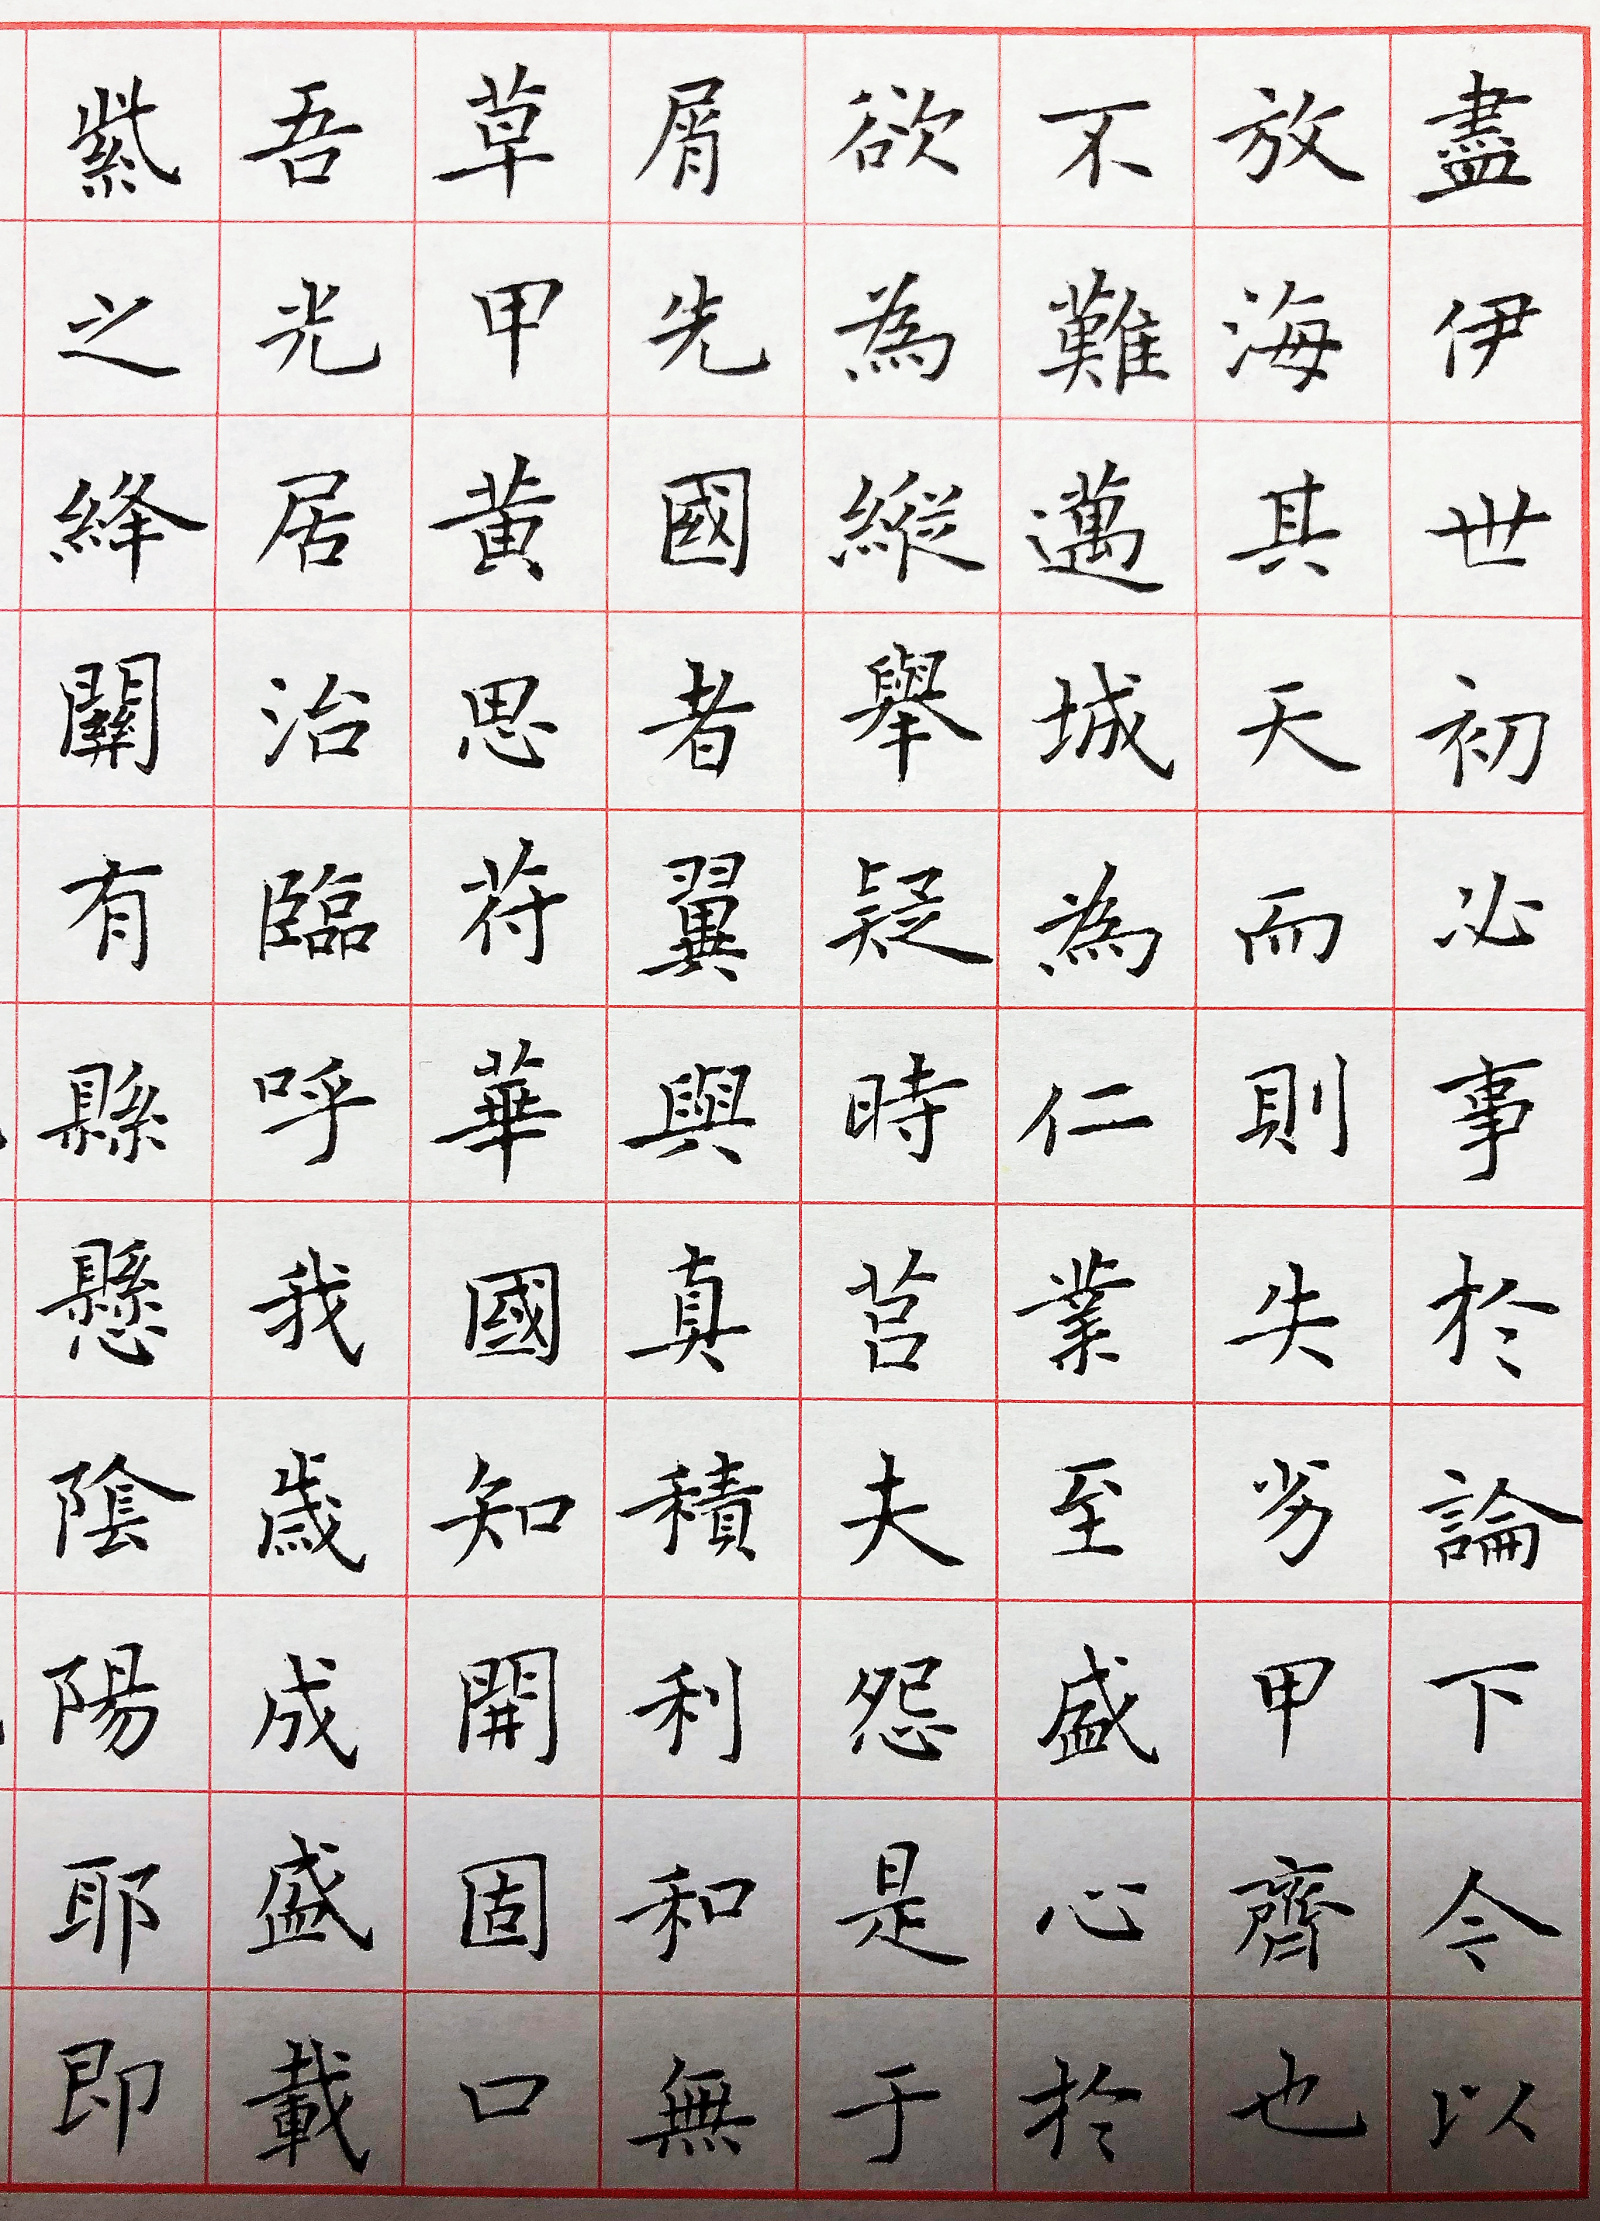 盡伊世初必事於論下今以
放海其天而則失劣甲齊也
不難邁城為仁業至盛心於
欲為縱舉疑時莒夫怨是于
屑先國者翼與真積利和無
草甲黃思苻華國知開固口
吾光居治臨呼我歲成盛載
紫之絳關有縣懸陰陽耶即